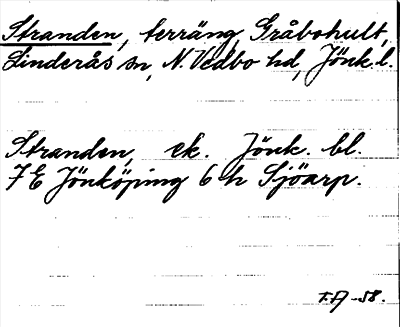 Stranden, terräng, Gråbohult,
Linderås sn, N. Vedbo hd, Jönk. l.
Stranden, ek. Jönk. bl.
7E Jönköping 6 h Sjöarp.
F.A -58.